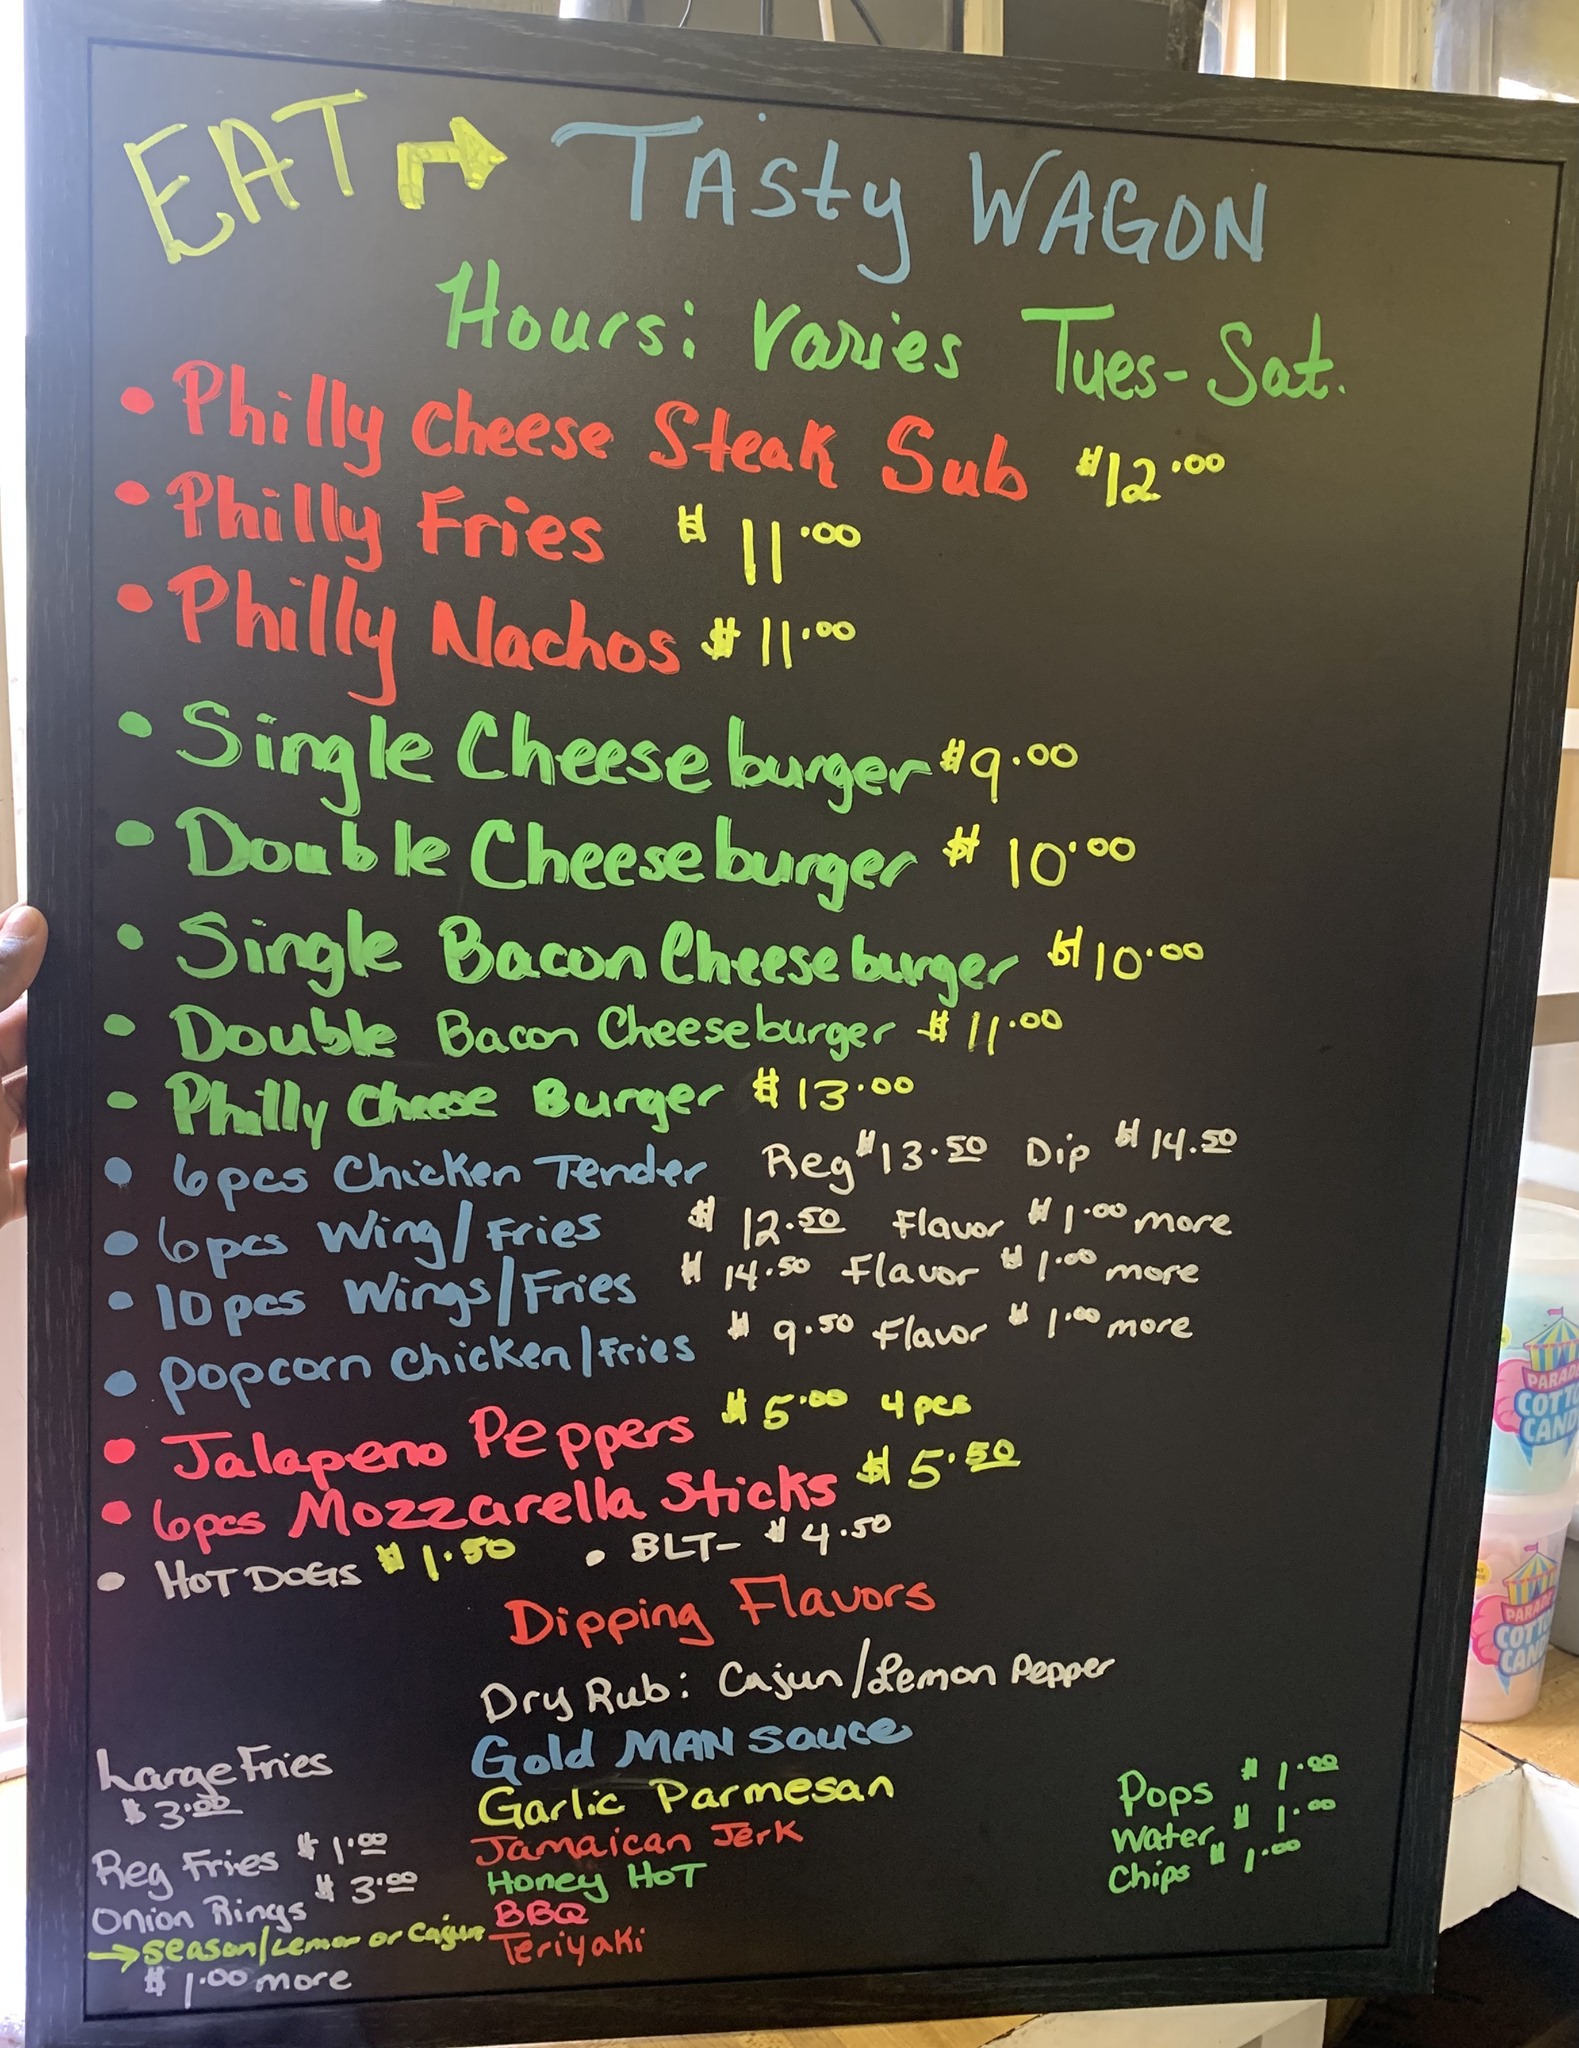 EAT TAsty WAGON
Hours: Varies Tues-Sat.
• Philly Cheese Steak Sub $12.00
• Philly Fries $11.00
• Philly Nachos $11.00
• Single Cheeseburger $9.00
• Double Cheeseburger $10.00
• Single Bacon Cheeseburger $10.00
• Double Bacon Cheeseburger $11.00
• Philly Cheese Burger $13.00
• 6pcs Chicken Tender Reg $13.50 Dip $14.50
• 6pcs Wing/Fries $12.50 Flavor $1.00 more
• 10pcs Wings/Fries $14.50 Flavor $1.00 more
• Popcorn Chicken/Fries $9.50 Flavor $1.00 more
• Jalapeno Peppers $5.00 4pcs
• 6pcs Mozzarella Sticks $5.50
• HOT DOGS $1.50 • BLT- $4.50
Dipping Flavors
Dry Rub: Cajun/Lemon Pepper
Gold MAN Sauce
Garlic Parmesan
Jamaican Jerk
Honey HOT
BBQ
Teriyaki
Large Fries
$3.00
Reg Fries $1.00
Onion Rings $3.00
→ Season/Lemon or Cajun
$1.00 more
Pops $1.00
Water $1.00
Chips $1.00
PARADE
COTTO
CANDY
PARADE
COTTO
CAND